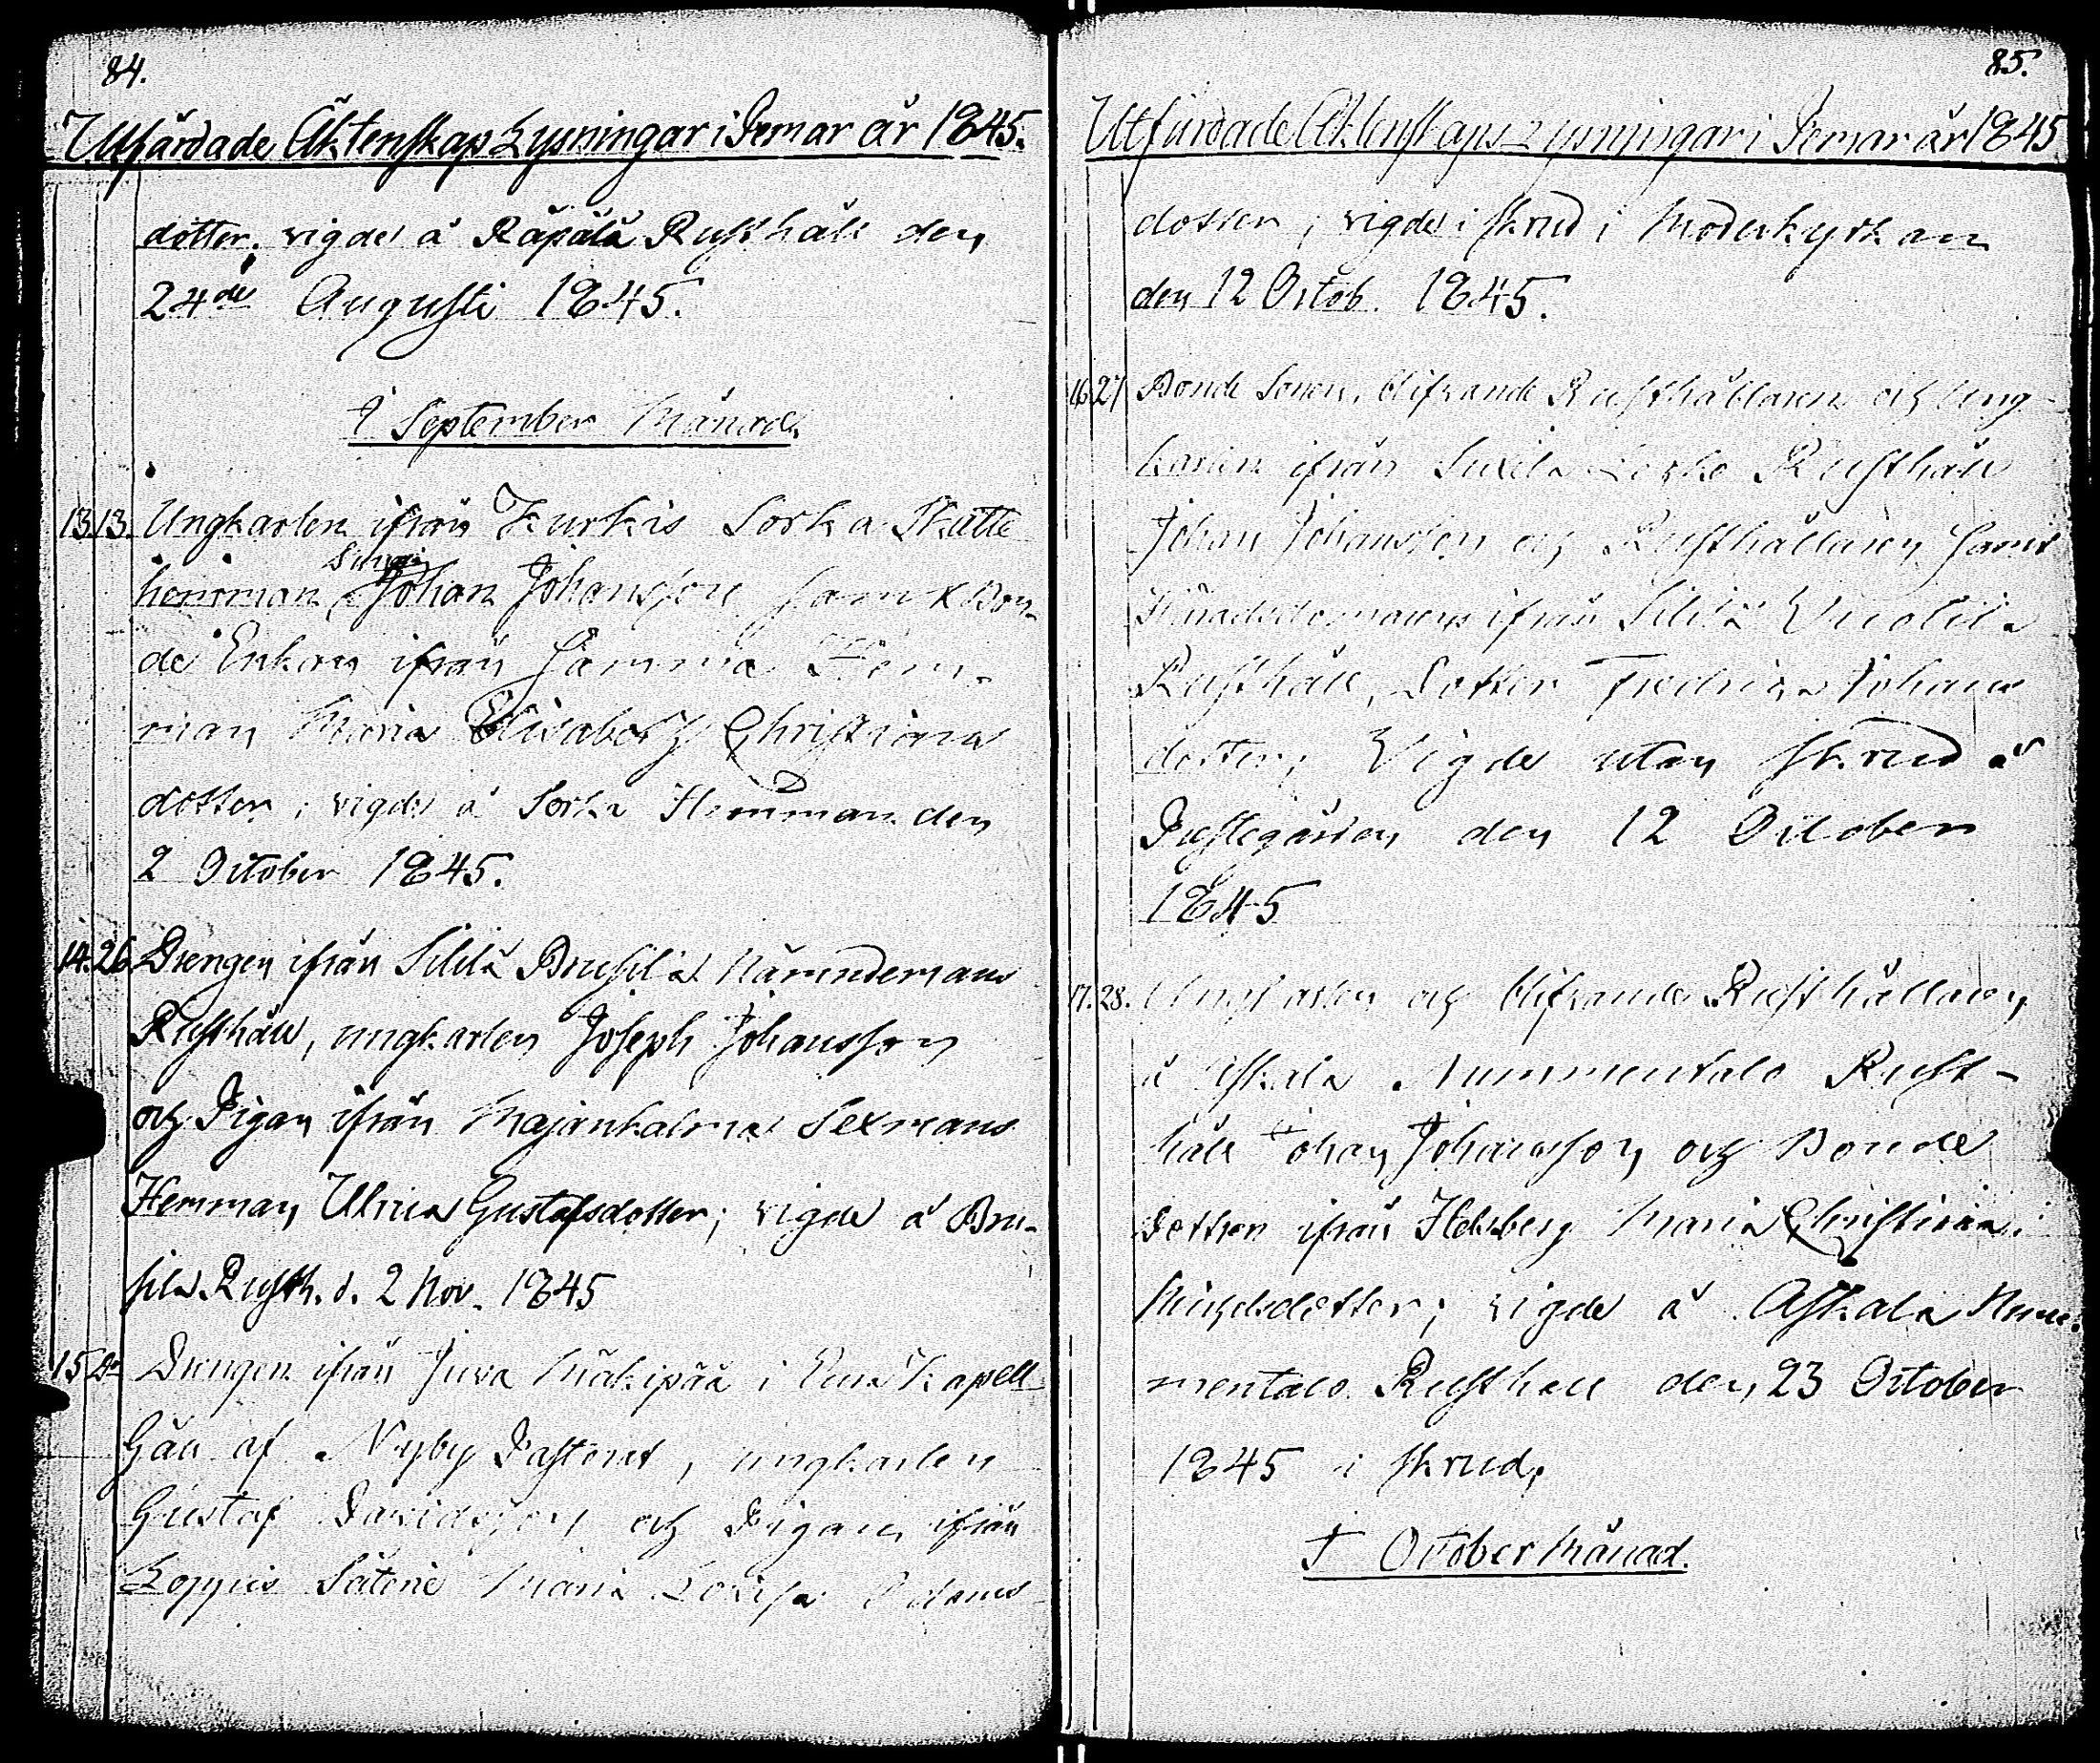 84.
Utfärdade Äktenskaps Lysningar i Pemar år 1845.
dotter, vigde å Räpälä Rusthåll den
24de Augusti 1845.
I September Månad.
13. 13. Ungkarlen ifrån Kurkis Sorka Skatte
hemman Johan Johansson samt Bon-
de Enkan ifrån Hem-
man Maria Elisabeth Christians
dotter; vigde å Sorka Hemman den
2 October 1845.
14. 26. Drengen ifrån Sililä Brusila Närindemans
Rusthåll, ungkarlen Joseph Johansson
och Pigan ifrån Majankalma Sexmans
Hemman, Ulrica Gustafsdotter; vigde å Bru-
sila Rusth. d. 2 Nov. 1845
15. Drengen ifrån Juva Mäkipää i Kapell
Gäll af Nyby Pastorat, ungkarlen
Gustaf Davidsson och Pigan ifrån
Loppis Säteri Maria Lovisa Adams
85.
Utfärdade Äktenskaps Lysningar i Pemar år 1845
dotter; vigde i skrud i Moderkyrkan
den 12 Octob. 1845.
16. 27 Bonde Sonen, blifvande Rusthållaren och Ung-
karlen ifrån Rusthåll
Johan Johansson och Rusthållaren samt
Häradsdomarens ifrån Sililä
Rusthåll, Dotter Fredrica Johans
dotter; Vigde utan skrud å
Prestegården den 12 October
1845
17. 28. Ungkarlen och blifvande Rusthållaren
å Askala Nummentalo Rust-
håll Johan Johansson och Bonde
Dotter ifrån Helsberg Maria Christina
Michelsdotter; vigde å Askala Num-
mentalo Rusthåll den 23 October
1845 i skrud.
I October Månad.